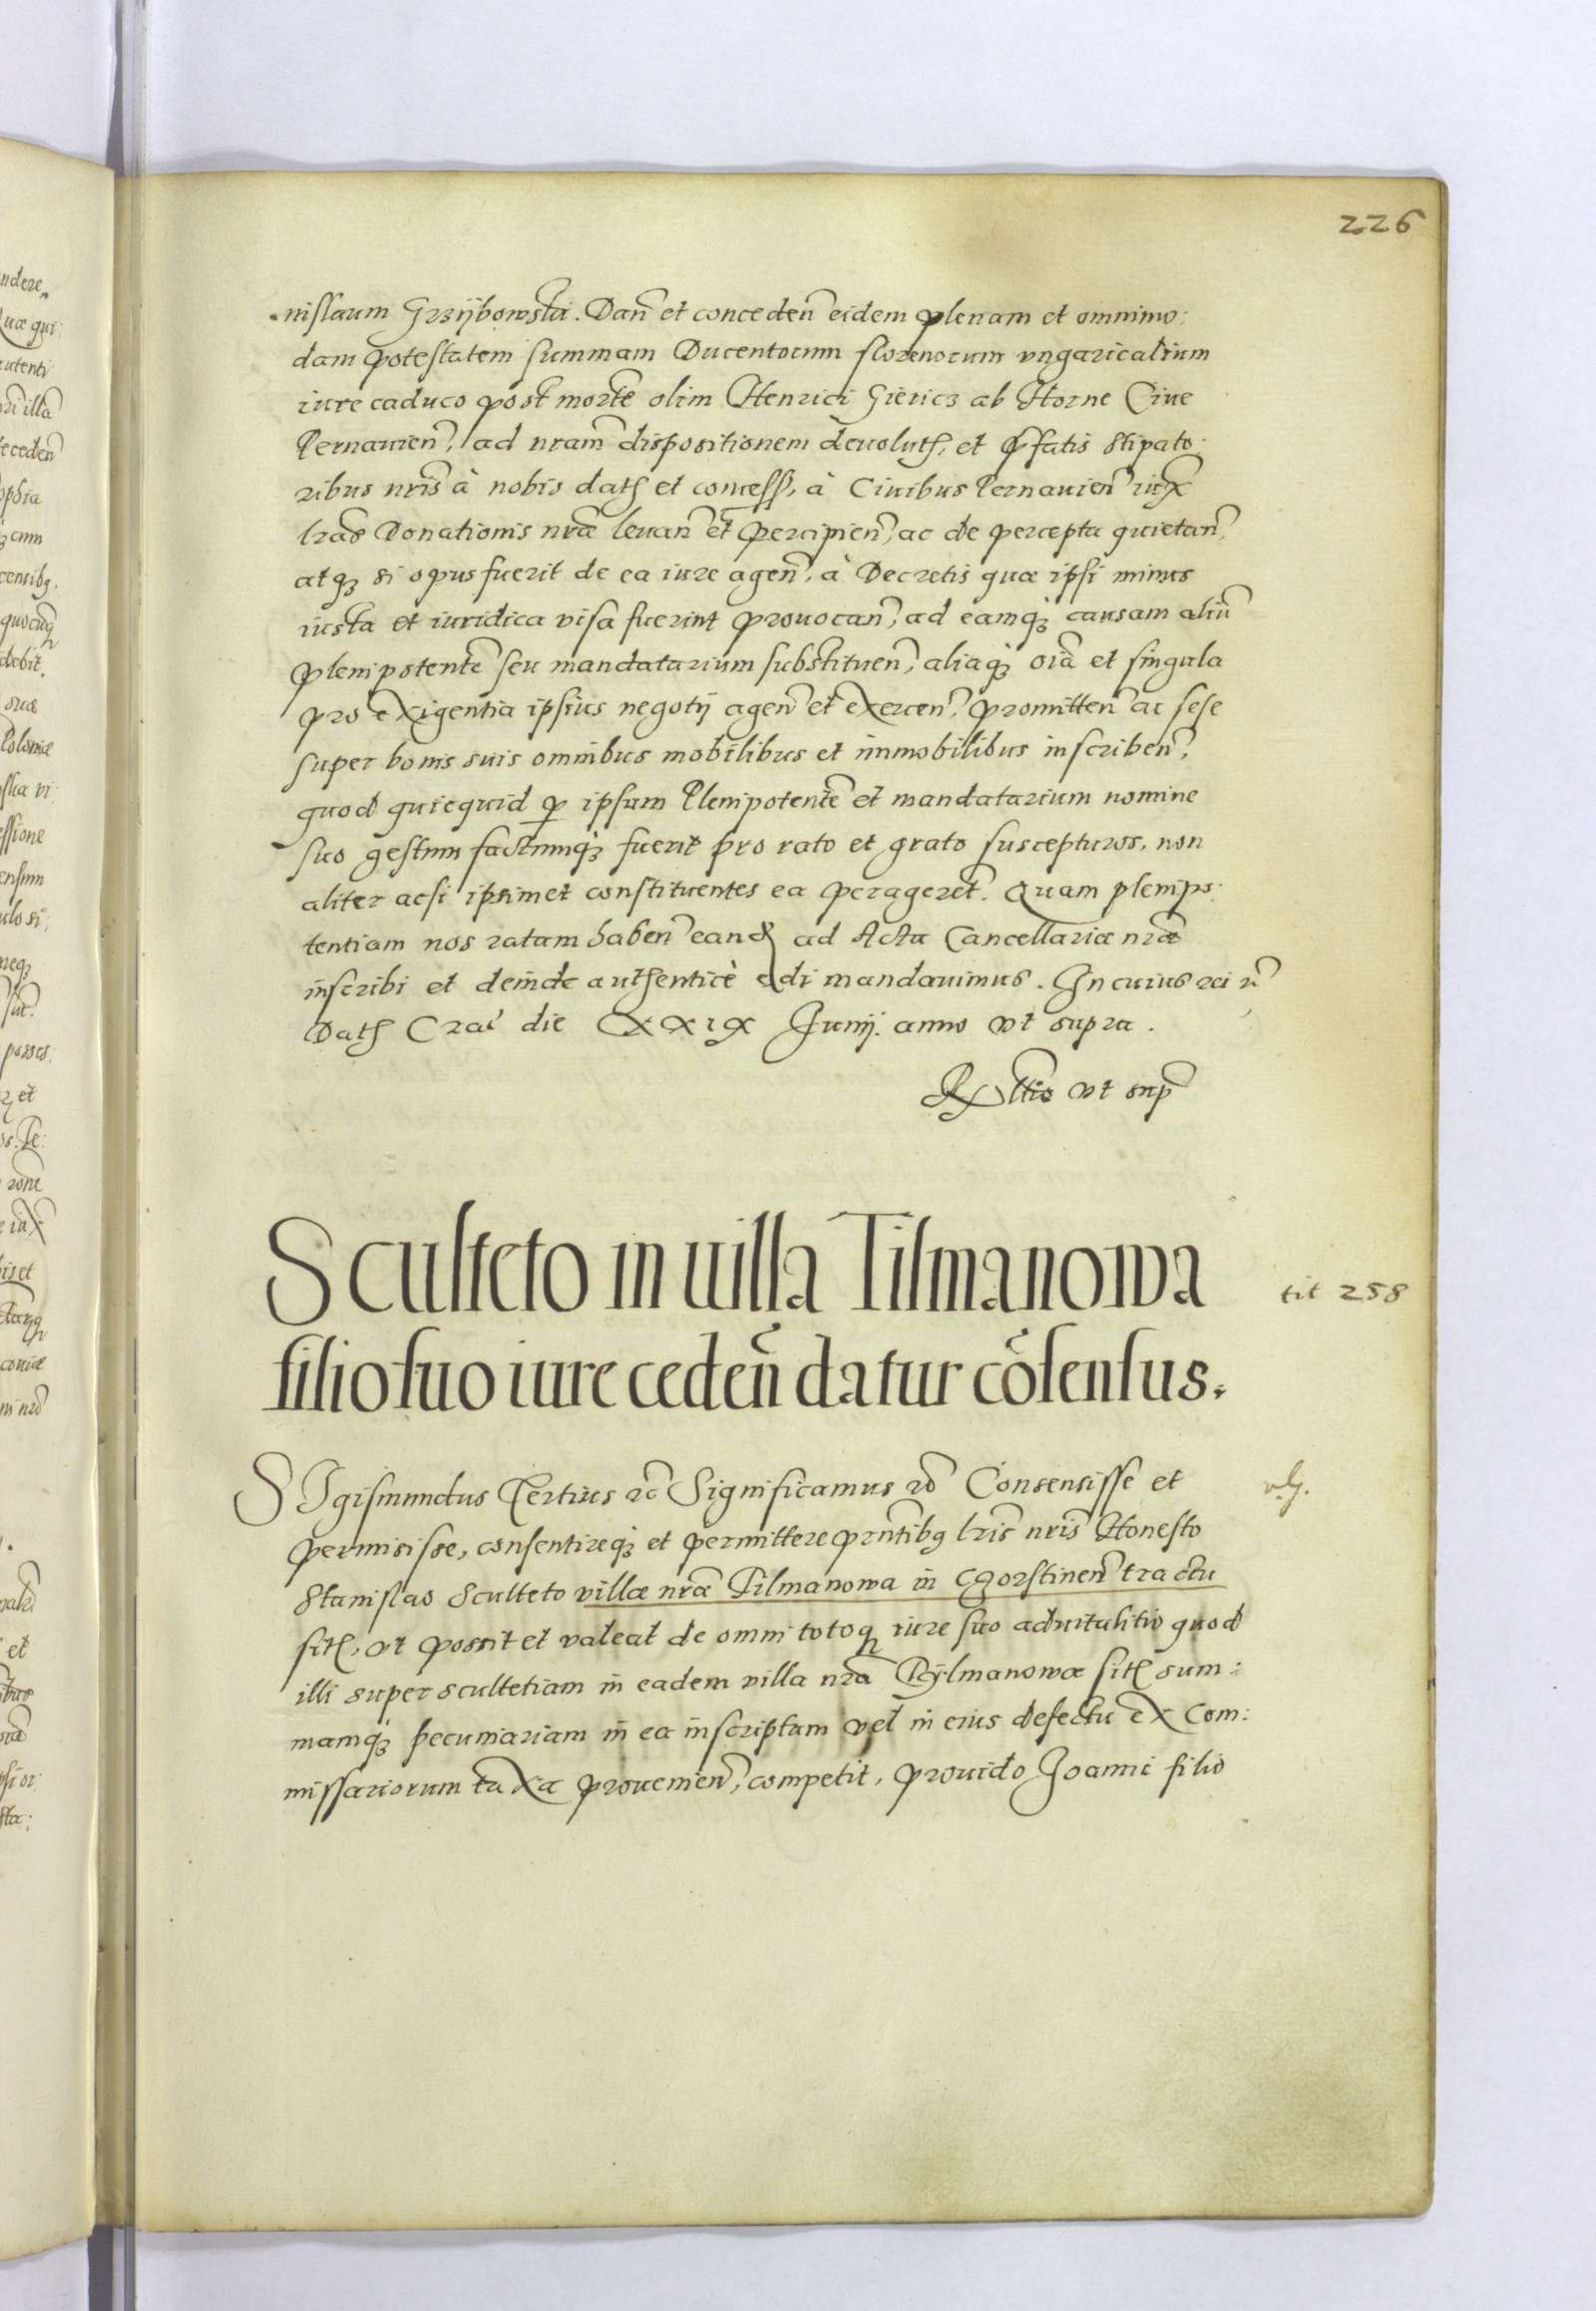 226
nislaum Grzÿbowski. Dan̄ et conceden̄ eidem plenam et omnimo:
dam potestatem summam Ducentorum florenorum vngaricalium
iure caduco post mortē olim Henrici Giericz ab Horne Ciue
Pernauien̄, ad nram̄ dispositionem deuolutꝭ, et p̄fatis stipato:
ribus nris̄ à nobis datꝭ et concess̄, à Ciuibus Pernauien̄ iux̄
lrās Donationis nrāe leuan̄ et percipien̄, ac de percepta quietan̄,
atqꝫ si opus fuerit de ea iure agen̄, à Decretis quæ ipsi minus
iusta et iuridica visa fuerint prouocan̄, ad eamqꝫ causam aliū
plenipotentē seu mandatarium substituen̄, aliaqꝫ oīa et singula
pro exigentia ipsius negotij agen̄ et exercen̄, promitten̄ ac sese
super bonis suis omnibus mobilibus et immobilibus inscriben̄,
quod quicquid ꝑ ipsum Plenipotentē et mandatarium nomine
suo gestum factumqꝫ fuerit pro rato et grato suscepturos, non
aliter acsi ipsimet constituentes ea perageret̄. Quam plenipo:
tentiam nos ratam haben̄ eand̄ ad Acta Cancellariæ nrǣ
inscribi et deinde authenticè edi mandauimus. In cuius rei rc̄
Datꝭ Craꝭ die XXIX Junij. anno vt supra.
Rltio vt sup̄
Sculteto in uilla Tilmanowa
tit 258
filio suo iure ceden̄ datur cōsensus.
SIgismundus Tertius rc̄ Significamus rc̄ Consensisse et
permisisse, consentireqꝫ et permittere prn̄tibꝯ lris̄ nris̄ Honesto
Stanislao Sculteto villæ nrǣ Tilmanowa in Czorstinen̄ tractu
sitꝭ, vt possit et valeat de omni totoqꝫ iure suo aduitalitio quod
illi super scultetiam in eadem villa nrā Tÿlmanowæ sitꝭ sum:
mamqꝫ pecuniariam in ea inscriptam vel in eius defectu ex Com:
missariorum taxa prouenien̄, competit, prouido Joanni filio